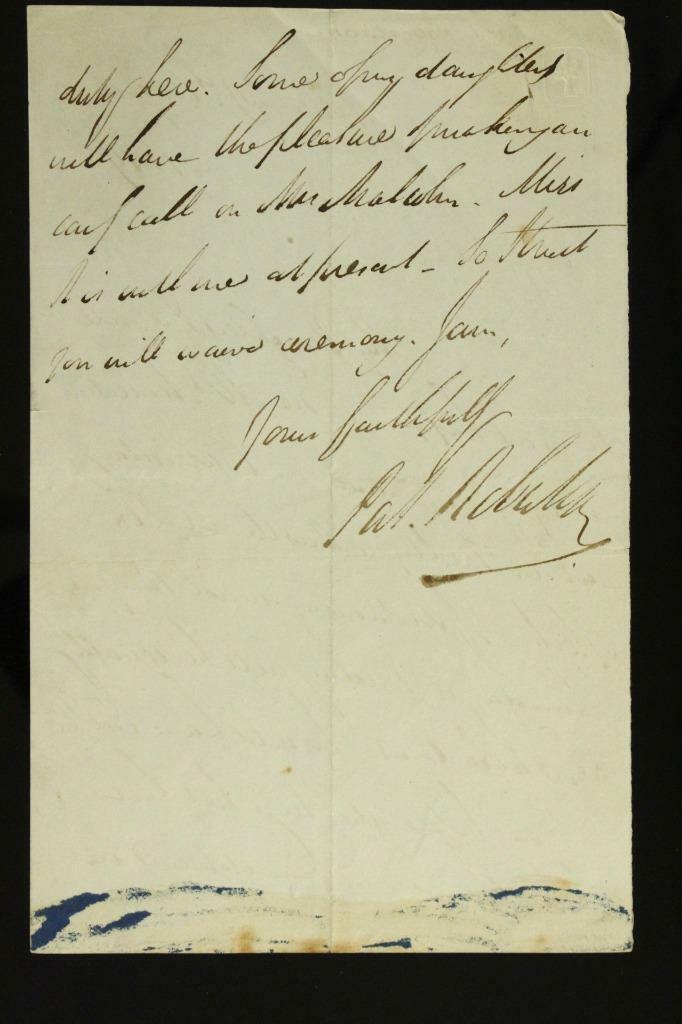 duty here. Some of my daughters
will have the pleasure of making an
early call on Mrs Malcolm. Miss
R is with me at present - So I trust
you will waive ceremony. I am,
Yours faithfully
Pat. Robertson